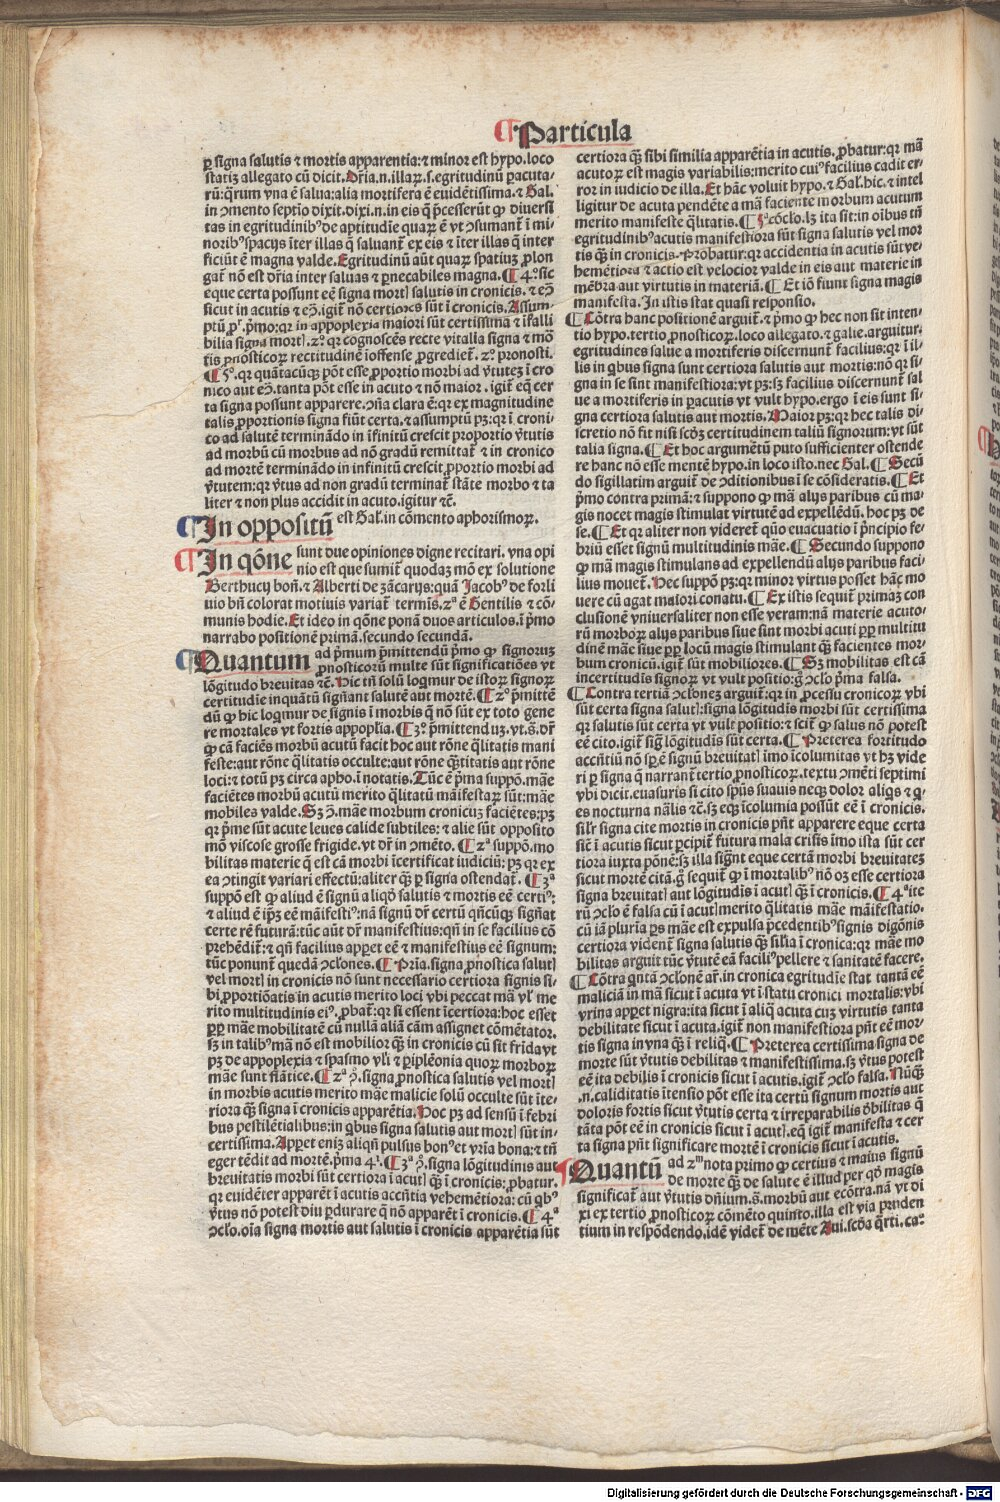 ¶Particula
ꝑ signa salutis ⁊ mortis apparentia:⁊ minor est hypo.loco
statiȝ allegato cū dicit.Dr̄ia.n.illaꝝ.s.egritudinū ꝑacuta-
rū:qͥrum vna ē salua:alia mortifera ē euidētissima.⁊ Gal.
in ↄmento septio dixit.dixi.n.in eis q̄ p̄cesserūt ꝙ diuersi
tas in egritudinibꝰ de aptitudīe quaꝝ ē vt ↄsumant̄ ī mi-
noribꝰ spacijs īter illas q̄ saluant̄ ex eis ⁊ īter illas q̄ inter
ficiūt ē magna valde.Egritudinū aūt quaꝝ spatiuȝ ꝓlon
gat̄ nō est dr̄ia inter saluas ⁊ ꝑnecabiles magna.¶4ͦ.sic
eque certa possunt eē signa mortꝭ salutis in cronicis.⁊ eↄ̄
sicut in acutis ⁊ eↄ̄.igit̄ nō certiores sūt ī cronicis.Assum-
ptū pꝫ.p̄mo:qr in appoplexia maiori sūt certissima ⁊ īfalli
bilia signa mortꝭ.2ͦ.qr cognoscēs recte vitalia signa ⁊ mo
tis ꝓnosticoꝝ rectitudinē īoffense ꝓgrediet̄.2ͦ.pronosti.
¶5ͦ.qr quātacūqꝫ pōt esse ꝓportio morbi ad v̄tuteȝ ī cro
nico aut eↄ̄.tanta pōt esse in acuto ⁊ nō maior.igit̄ eq̄ cer
ta signa possunt apparere.ↄn̄a clara ē:qr ex magnitudine
talis ꝓportionis signa fiūt certa.⁊ assumptū pꝫ:qr ī croni-
co ad salutē terminādo in īfinitū crescit proportio v̄tutis
ad morbū cū morbus ad nō gradū remittat̄ ⁊ in cronico
ad mortē terminādo in infinitū crescit ꝓportio morbi ad
v̄tutem:qr v̄tus ad non gradū terminat̄ stāte morbo ⁊ ta
liter ⁊ non plus accidit in acuto.igitur ⁊c̄.
¶In oppositū est Gal.in cōmento aphorismoꝝ.
¶In qōne sunt due opiniones digne recitari.vna opi
nio est que sumit̄ quodaȝ mō ex solutione
Berthucij bon̄.⁊ Alberti de zācarijs:quā Jacobꝰ de forli
uio bn̄ colorat motiuis variat̄ termīs.2ª ē Gentilis ⁊ cō-
munis hodie.Et ideo in qōne ponā duos articulos.ī p̄mo
narrabo positionē primā.secundo secundā.
¶Quantum ad p̄mum p̄mittendū p̄mo ꝙ signoruȝ
ꝓnosticorū multe sūt significatiōes vt
lōgitudo breuitas ⁊c̄.Hic tn̄ solū loqͥmur de istoꝝ signoꝝ
certitudīe inquātū sign̄ant salutē aut mortē.¶2ͦ p̄mittē
dū ꝙ hic loqͥmur de signis ī morbis q̄ nō sūt ex toto gene
re mortales vt fortis appopl̄ia.¶3ͦ.p̄mittenduȝ.vt.s̄.dr̄
ꝙ cā faciēs morbū acutū facit hoc aut rōne q̄litatis mani
feste:aut rōne q̄litatis occulte:aut rōne q̄titatis aut rōne
loci:⁊ totū pꝫ circa apho.ī notatis.Tūc ē p̄ma suppō.māe
faciētes morbū acutū merito q̄litatū māifestaꝝ sūt:māe
mobiles valde.Sꝫ ꝯ̄.māe morbum cronicuȝ faciētes:pꝫ
qr p̄me sūt acute leues calide subtiles:⁊ alie sūt opposito
mō viscose grosse frigide.vt dr̄ in ↄmēto.¶2ª suppō.mo
bilitas materie q̄ est cā morbi īcertificat iudiciū: pꝫ qr ex
ea ↄtingit variari effectū:aliter qꝫ̄ ꝑ signa ostendat̄.¶3ª
suppō est ꝙ aliud ē signū aliqd̄ salutis ⁊ mortis eē certiꝰ:
⁊ aliud ē ip̄ȝ eē māifestiꝰ:nā signū dr̄ certū qn̄cūqꝫ sign̄at
certe rē futurā:tūc aūt dr̄ manifestius:qn̄ in se facilius cō
prehēdit̄:⁊ qn̄ facilius appet eē ⁊ manifestius eē signum:
tūc ponunt̄ quedā ↄclōnes.¶Prīa.signa ꝓnostica salutꝭ
vel mortꝭ in cronicis nō sunt necessario certiora signis si-
bi ꝓportiōatis in acutis merito loci vbi peccat mā vl̓ me
rito multitudinis eiꝰ.ꝓbat̄:qr si essent īcertiora:hoc esset
ꝓpꝑ māe mobilitatē cū nullā aliā cām assignet cōmētator.
sꝫ in talibꝰ mā nō est mobilior qꝫ̄ in cronicis cū sit frida vt
pꝫ de appoplexia ⁊ spasmo vl̓i ⁊ ꝑiplēonia quoꝝ morboꝝ
māe sunt flātice.¶2ª ꝯ̄.signa ꝓnostica salutis vel mortꝭ
in morbis acutis merito māe malicie solū occulte sūt īte-
riora qꝫ̄ signa ī cronicis apparētia.Hoc pꝫ ad sensū ī febri
bus pestilētialibus:in qͥbus signa salutis aut mortꝭ sūt in-
certissima.Appet eniȝ aliqn̄ pulsus bonꝰ et vrīa bona:⁊ tn̄
eger tēdit ad mortē.p̄ma 4ͥ.¶3ª ꝯ̄.signa lōgitudinis aut
breuitatis morbi sūt certiora ī acutꝭ qꝫ̄ ī cronicis:ꝓbatur.
qr euidēter apparēt ī acutis accn̄tia vehemētiora: cū qͥbꝰ
v̄tus nō potest diu ꝑdurare q̄ nō apparēt ī cronicis.¶4ª
ↄclō.oīa signa mortis aut salutis ī cronicis apparētia sūt
certiora qꝫ̄ sibi similia apparētia in acutis.ꝓbatur:qr mā
acutoꝝ est magis variabilis:merito cuiꝰ facilius cadit er-
ror in iudicio de illa.Et hāc voluit hypo.⁊ Gal.hic.⁊ intel
ligitur de acuta pendēte a mā faciente morbum acutum
merito manifeste q̄litatis.¶5ª cōclō.lꝫ ita sit:in oībus tn̄
egritudinibꝰ acutis manifestiora sūt signa salutis vel mor
tis qꝫ̄ in cronicis.Probatur:qr accidentia in acutis sūt ve-
hemētiora ⁊ actio est velocior valde in eis aut materie in
mēbra aut virtutis in materiā.¶Et iō fiunt signa magis
manifesta.In istis stat quasi responsio.
¶Cōtra hanc positionē arguit̄.⁊ p̄mo ꝙ hec non sit inten-
tio hypo.tertio ꝓnosticoꝝ.loco allegato.⁊ galie.arguitur.
egritudines salue a mortiferis discernunt̄ facilius:qr ī il-
lis in qͥbus signa sunt certiora salutis aut mortis:nō qr si-
gna in se sint manifestiora:vt pꝫ:sꝫ facilius discernunt̄ sal
ue a mortiferis in ꝑacutis vt vult hypo.ergo ī eis sunt si-
gna certiora salutis aut mortis.Maior pꝫ:qr hec talis di-
scretio nō fit nisi scd̄ȝ certitudinem taliū signorum:vt sūt
talia signa.¶Et hoc argumētū puto sufficienter ostende
re hanc nō esse mentē hypo.in loco isto.nec Gal.¶Secū
do sigillatim arguit̄ de ↄditionibus ī se cōsideratis.¶Et
p̄mo contra primā:⁊ suppono ꝙ mā alijs paribus cū ma-
gis nocet magis stimulat virtutē ad expellēdū.hoc pꝫ de
se.¶Et qr aliter non videret̄ qūo euacuatio ī p̄ncipio fe-
briū esset signū multitudinis māe.¶Secundo suppono
ꝙ mā magis stimulans ad expellendū alijs paribus faci-
lius mouet̄.Hec suppō pꝫ:qr minor virtus posset hāc mo
uere cū agat maiori conatu.¶Ex istis sequit̄ primaȝ con
clusionē vniuersaliter non esse veram:nā materie acuto-
rū morboꝝ alijs paribus siue sint morbi acuti ꝓpꝑ multitu
dinē māe siue ꝓpꝑ locū magis stimulant qꝫ̄ facientes mor-
bum cronicū.igit̄ sūt mobiliores.¶Sꝫ mobilitas est cā
incertitudīs signoꝝ vt vult positio:g̊ ↄclō p̄ma falsa.
¶Contra tertiā ↄclōneȝ arguit̄:qr in ꝓcessu cronicoꝝ vbi
sūt certa signa salutꝭ:signa lōgitudīs morbi sūt certissima
qr salutis sūt certa vt vult positio:⁊ scit̄ ꝙ salus nō potest
eē cito.igit̄ sig̃ lōgitudīs sūt certa.¶Preterea fortitudo
accn̄tiū nō sp̄ ē signū breuitatꝭ īmo īcolumitas vt hꝫ vide
ri ꝑ signa q̄ narrant̄ tertio ꝓnosticoꝝ.textu ↄmēti septimi
vbi dicit.euasuris si cito spūs suauis neqꝫ dolor aliqͥs ⁊ qͥ-
es nocturna nālis ⁊c̄.sꝫ eqꝫ īcolumia possūt eē ī cronicis.
sil̓r signa cite mortis in cronicis pn̄t apparere eque certa
sic̄ ī acutis sicut p̄cipit̄ futura mala crisis īmo ista sūt cer
tiora iuxta pōnē:sꝫ illa sign̄t eque certā morbi breuitateȝ
sicut mortē citā.g̊ sequit̄ ꝙ ī mortalibꝰ nō oꝫ esse certiora
signa breuitatꝭ aut lōgitudīs ī acutꝭ qꝫ̄ ī cronicis.¶4ª ite
rū ↄclō ē falsa cū ī acutꝭ merito q̄litatis māe māifestatio.
cū iā pluria ꝑs māe est expulsa p̄cedentibꝰ signis digōnis
certiora vident̄ signa salutis qꝫ̄ sil̓ia ī cronica:qr māe mo
bilitas arguit tūc v̄tutē eā faciliꝰ pellere ⁊ sanitatē facere.
¶Cōtra qͥntā ↄclōnē ar̄.in cronica egritudīe stat tantā eē
maliciā in mā sicut ī acuta vt ī statu cronici mortalis:vbi
vrina appet nigra:ita sicut ī aliq̄ acuta cuȝ virtutis tanta
debilitate sicut ī acuta.igit̄ non manifestiora pn̄t eē mor-
tis signa in vna qꝫ̄ ī reliq̄.¶Preterea certissima signa de
morte sūt v̄tutis debilitas ⁊ manifestissima.sꝫ v̄tus potest
eē ita debilis ī cronicis sicut ī acutis.igit̄ ↄclō falsa.Nūqͥd
.n.caliditatis ītensio pōt esse ita certū signum mortis aut
doloris fortis sicut v̄tutis certa ⁊ irreparabilis d̄bilitas q̄
tāta pōt eē in cronicis sicut ī acutꝭ.eq̄ igit̄ manifesta ⁊ cer
ta signa pn̄t significare mortē ī cronicis sicut ī acutis.
¶Quantū ad 2ᵐ nota primo ꝙ certius ⁊ maius signū
de morte qꝫ̄ de salute ē illud per qd̄ magis
significat̄ aut v̄tutis dn̄ium.s̄.morbū aut ecōtra.nā vt di
xi ex tertio ꝓnosticoꝝ cōmēto quinto.illa est via pruden
tium in respōdendo.idē videt̄ de mēte Aui.scd̄a qͣrti.caͦ.
Digitalisierung gefördert durch die Deutsche Forschungsgemeinschaft - DFG